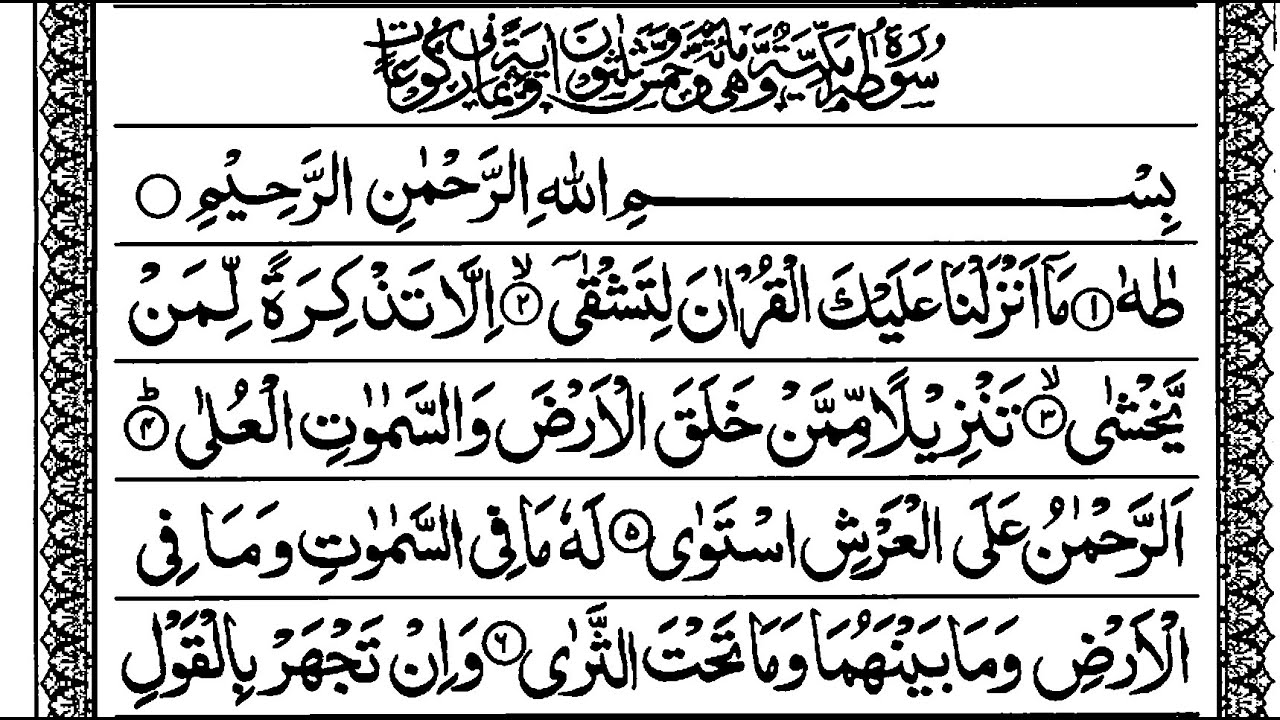 سُوْرَةُ طٰهٰ مَكِّيَّةٌ وَّهِيَ مِائَةٌ وَّخَمْسٌ وَّثَلٰثُوْنَ اٰيَةً وَّثَمَانِيْ رُكُوْعَاتٍ
بِسْمِ اللّٰهِ الرَّحْمٰنِ الرَّحِيْمِ ○
طٰهٰ ۝۱ مَاۤ اَنْزَلْنَا عَلَيْكَ الْقُرْاٰنَ لِتَشْقٰۤى ۝۲ۙ اِلَّا تَذْكِرَةً لِّمَنْ
يَّخْشٰى ۝۳ۙ تَنْزِيْلًا مِّمَّنْ خَلَقَ الْاَرْضَ وَالسَّمٰوٰتِ الْعُلٰى ۝۴ؕ
اَلرَّحْمٰنُ عَلَى الْعَرْشِ اسْتَوٰى ۝۵ لَهٗ مَا فِى السَّمٰوٰتِ وَمَا فِى
الْاَرْضِ وَمَا بَيْنَهُمَا وَمَا تَحْتَ الثَّرٰى ۝۶ وَاِنْ تَجْهَرْ بِالْقَوْلِ